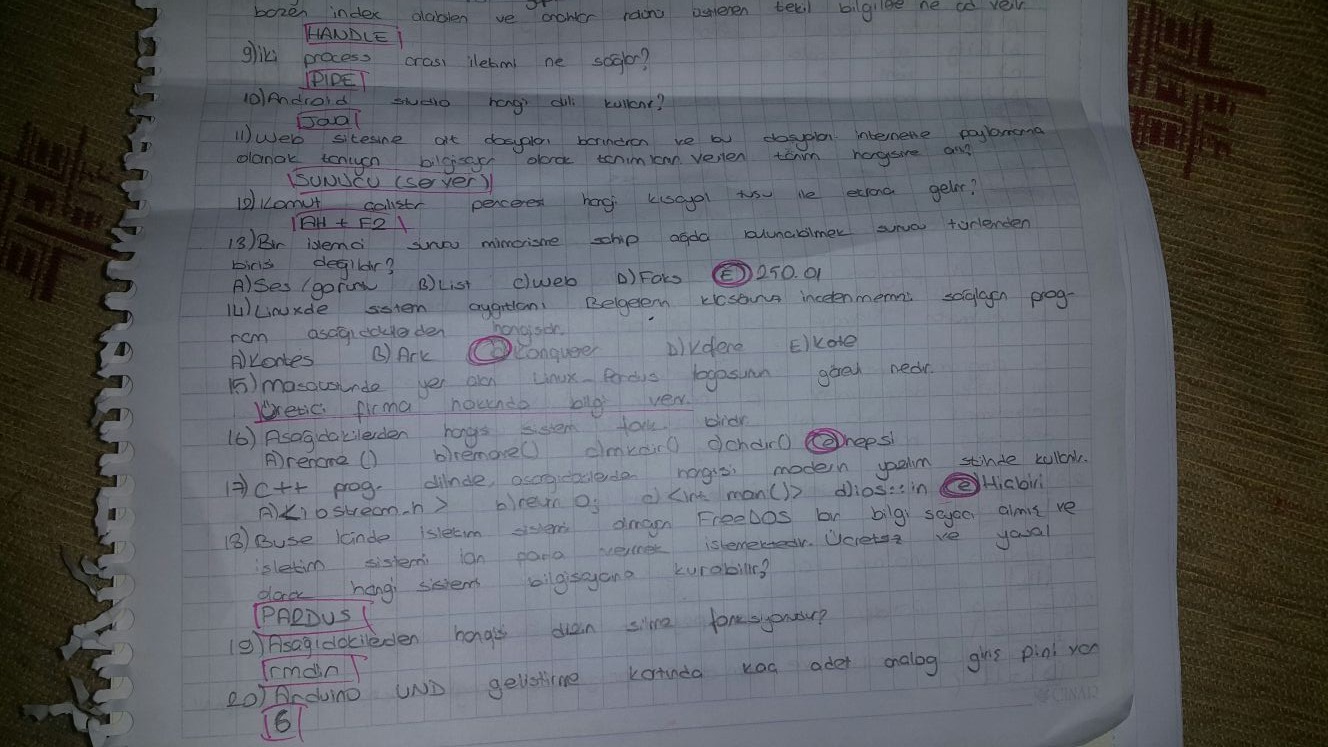 bazen index olabilen ve anahtar radını gösteren tekil bilgilere ne ad verilir
HANDLE
9) iki process arası iletimi ne sağlar?
PIPE
10) Android studio hangi dili kullanır?
Java
11) Web sitesine ait dosyaları barındıran ve bu dosyaları internette paylaşmana
olanak tanıyan bilgisayar olarak tanımların verilen tanım hangisine ait?
SUNUCU (server)
12) Komut çalıştır penceresi hangi kısayol tuşu ile ekrana gelir?
Alt + F2
13) Bir istemci sunucu mimarisine sahip ağda bulunabilmek sunucu türlerinden
birisi değildir?
A) Ses/görüntü B) List C) Web D) Faks E) 250.01
14) Linuxde sistem aygıtları Belgelerim klasörünü incelenmesini sağlayan prog-
ram aşağıdakilerden hangisidir.
A) Kontes B) Ark C) Konqueror D) Kdene E) Kate
15) Masaüstünde yer alan Linux-Pardus logosunun görevi nedir.
Üretici firma hakkında bilgi verir.
16) Aşağıdakilerden hangisi sistem fonk. biridir
A) rename () b) remove() c) mkdir() d) chdir() e) hepsi
17) C++ prog. dilinde, aşağıdakilerden hangisi modern yazılım stilinde kullanılır.
A) <iostream.h> b) return 0; c) <int main()> d) ios::in e) Hiçbiri
18) Buse içinde işletim sistemi olmayan FreeDOS bir bilgisayar almış ve
işletim sistemi için para vermek istemektedir. Ücretsiz ve yasal
olarak hangi sistemi bilgisayarına kurabilir?
PARDUS
19) Aşağıdakilerden hangisi dizin silme fonksiyonudur?
rmdir
20) Arduino UNO geliştirme kartında kaç adet analog giriş pini var
6